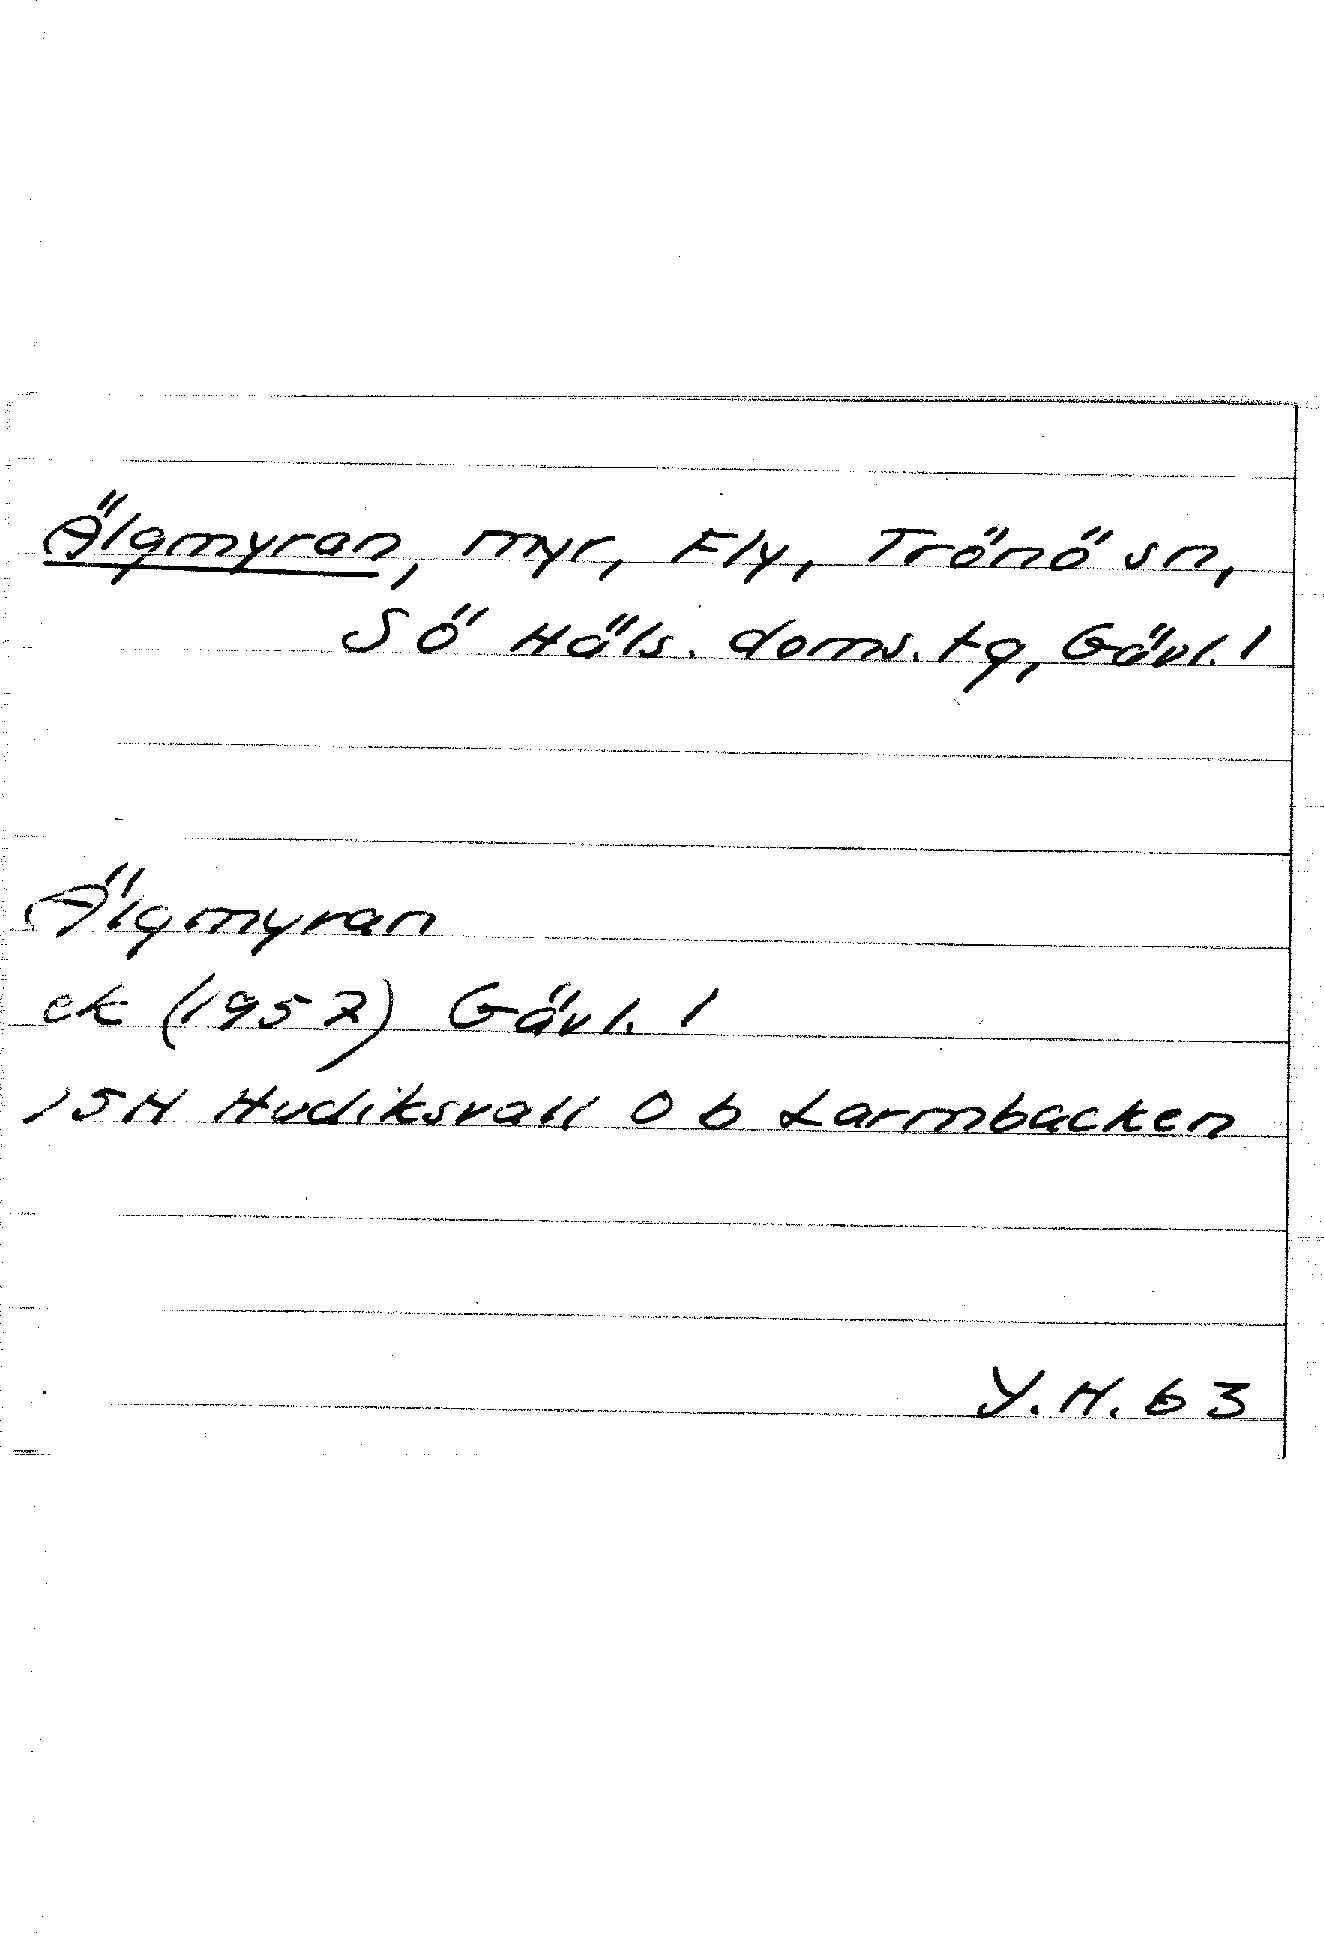 Älgmyran, myr, Fly, Trönö sn,
Sö Häls. doms. tg, Gävl. l
Älgmyran
ek (1957) Gävl. l
15H Hudiksvall 0 b Larmbacken
Y.H. 63